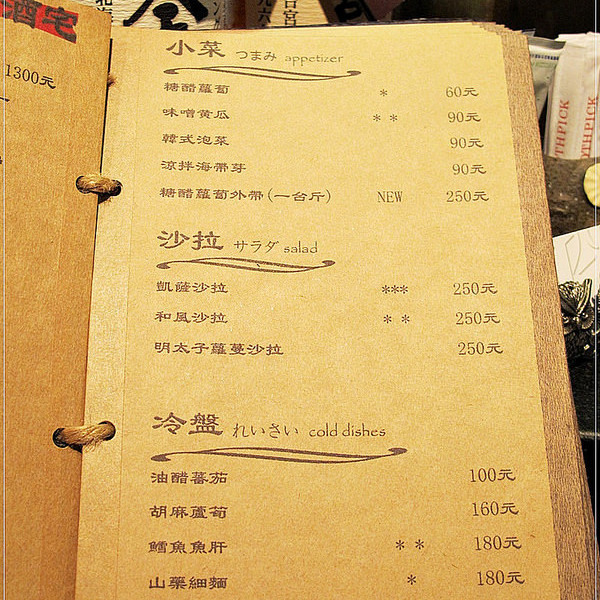 酒宅
1300元
小菜 つまみ appetizer
糖醋蘿蔔 * 60元
味噌黃瓜 * * 90元
韓式泡菜 90元
涼拌海帶芽 90元
糖醋蘿蔔外帶(一台斤) NEW 250元
沙拉 サラダ salad
凱薩沙拉 *** 250元
和風沙拉 * * 250元
明太子蘿蔓沙拉 250元
冷盤 れいさい cold dishes
油醋蕃茄 100元
胡麻蘆筍 160元
鱈魚魚肝 * * 180元
山藥細麵 * 180元
THPICK
OTHPICK